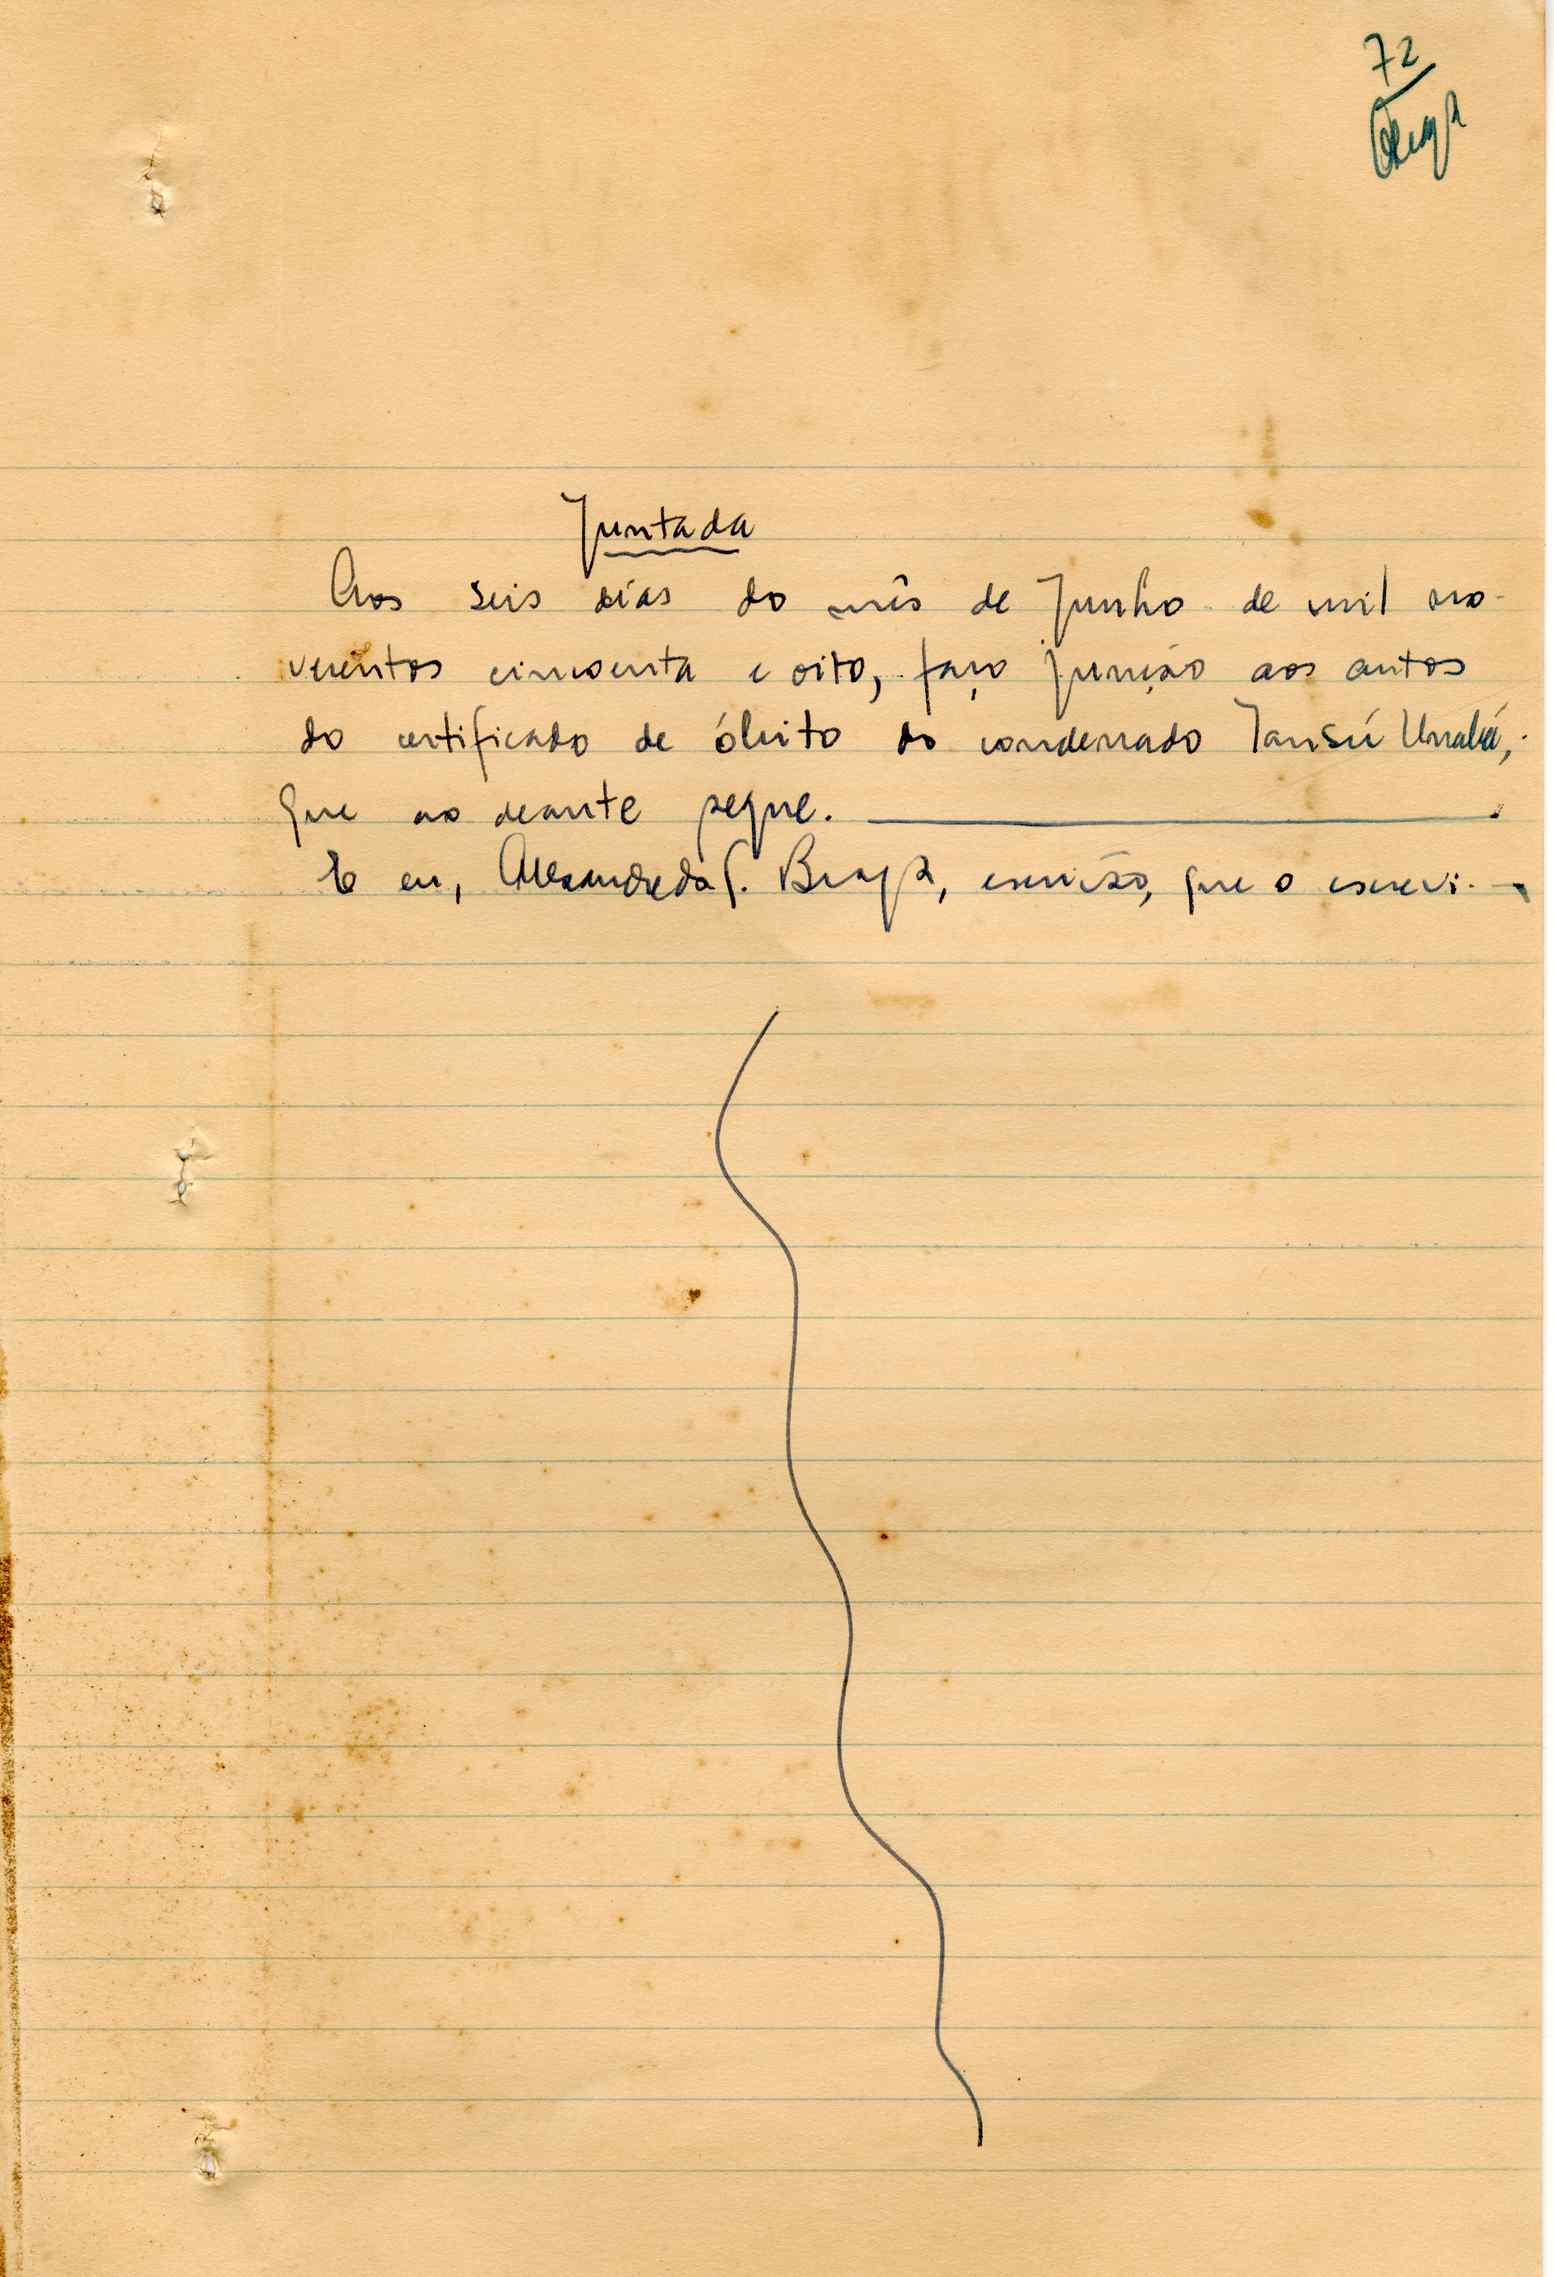 72
Juntada
Aos seis dias do mês de Junho de mil no-
vecentos cincoenta e oito, faço junção aos autos
do certificado de óbito do condenado Tansú Unabá,
que ao deante segue.
E eu, Alexandre da S. Braga, escrivão, que o escrevi.